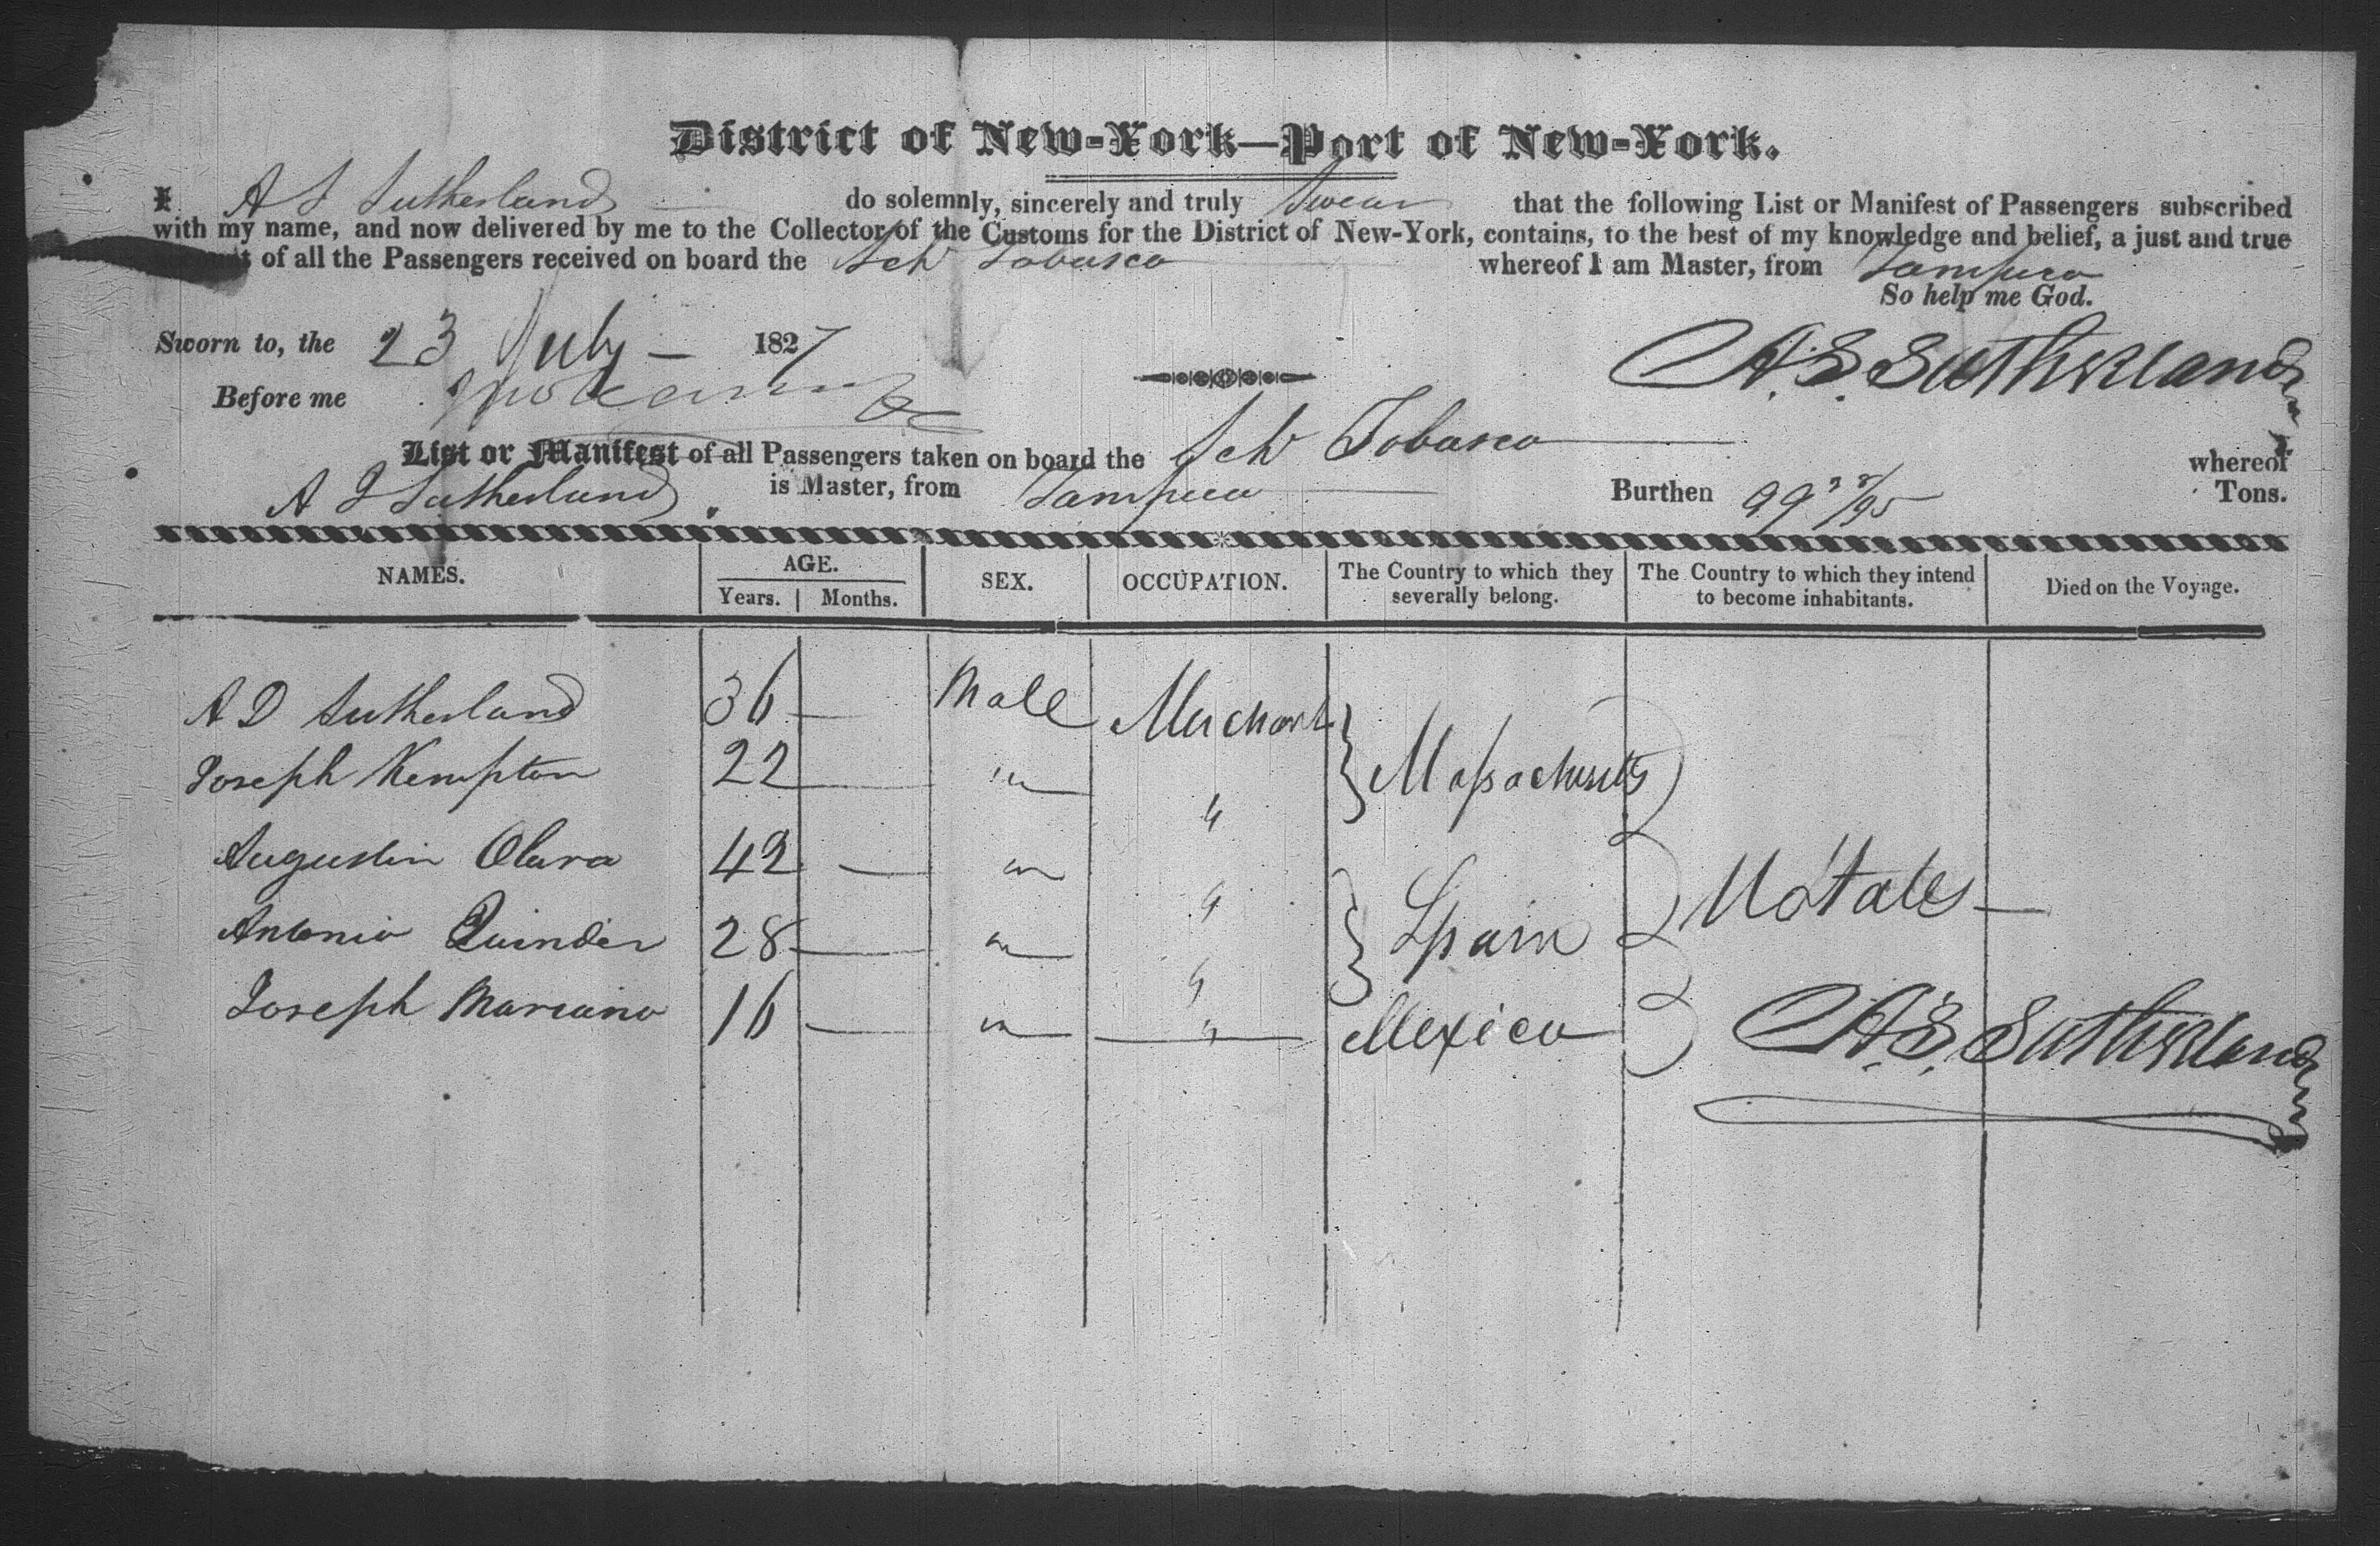 District of New-York—Port of New-York.
I A S Sutherland do solemnly, sincerely and truly Swear that the following List or Manifest of Passengers subscribed
with my name, and now delivered by me to the Collector of the Customs for the District of New-York, contains, to the best of my knowledge and belief, a just and true
of all the Passengers received on board the Sch Tobasco whereof I am Master, from Tampico
So help me God.
Sworn to, the 23 July — 1827
A. S. Sutherland
Before me
List or Manifest of all Passengers taken on board the Sch Tobasco whereof
A S Sutherland is Master, from Tampico Burthen 99 /95 Tons.
NAMES. AGE. SEX. OCCUPATION. The Country to which they severally belong. The Country to which they intend to become inhabitants. Died on the Voyage.
Years. Months.
A D Sutherland 36 — Male Merchant } Massachusetts
Joseph Kempton 22 — " "
Augustin 42 — " " } Spain } UStates —
Antonio 28 — " "
Joseph Mareano 16 — " " Mexico
A. S. Sutherland